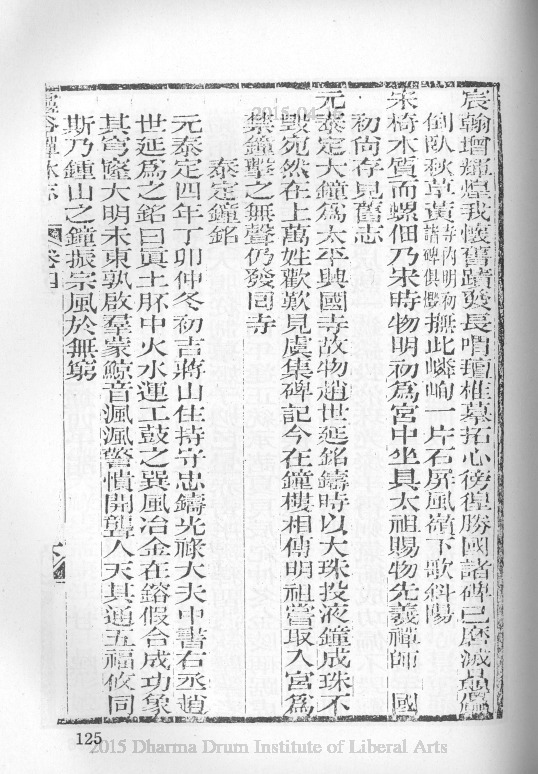 宸翰增輝煌我懷舊蹟發長喟㩲椎墓拓心徬徨勝國諸碑已磨滅
倒臥秋草黃寺內明初諸碑俱燬撫此嶙峋一片石屏風嶺下歌斜陽
宋椅木質而螺佃乃宋時物明初為宮中坐具太祖賜物先義禪師 國
初尚存見舊志
元泰定大鐘為太平興國寺故物趙世延銘鑄時以大珠投液鐘成珠不
毀宛然在上萬姓歡歎見虞集碑記今在鐘樓相傳明祖嘗取入宮為
禁鐘擊之無聲仍發回寺
泰定鐘銘
元泰定四年丁卯仲冬初吉蔣山住持守忠鑄光祿大夫中書右丞趙
世延為之銘曰眞土胚中火水運工鼓之巽風冶金在鎔假合成功象
其穹窿大明未東孰啟羣蒙鯨音渢渢警憒開聾人天其通五福攸同
斯乃鍾山之鐘振宗風於無窮
靈谷禪林志 卷四 六
125
2015-04
2015 Dharma Drum Institute of Liberal Arts